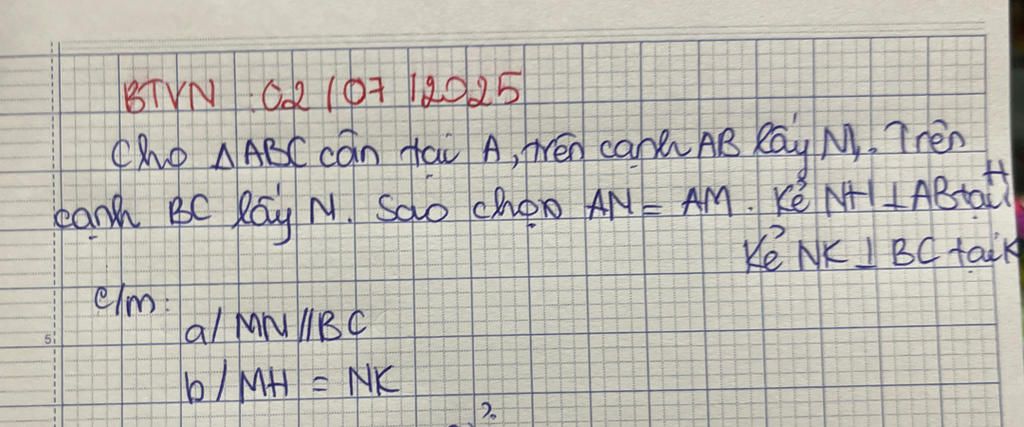 BTVN : 02/07/2025
Cho ΔABC cân tại A, trên cạnh AB lấy M. Trên
cạnh BC lấy N. Sao chọn AN = AM. Kẻ NH ⊥ AB tại H
Kẻ NK ⊥ BC tại K
c/m:
a/ MN // BC
b/ MH = NK
5